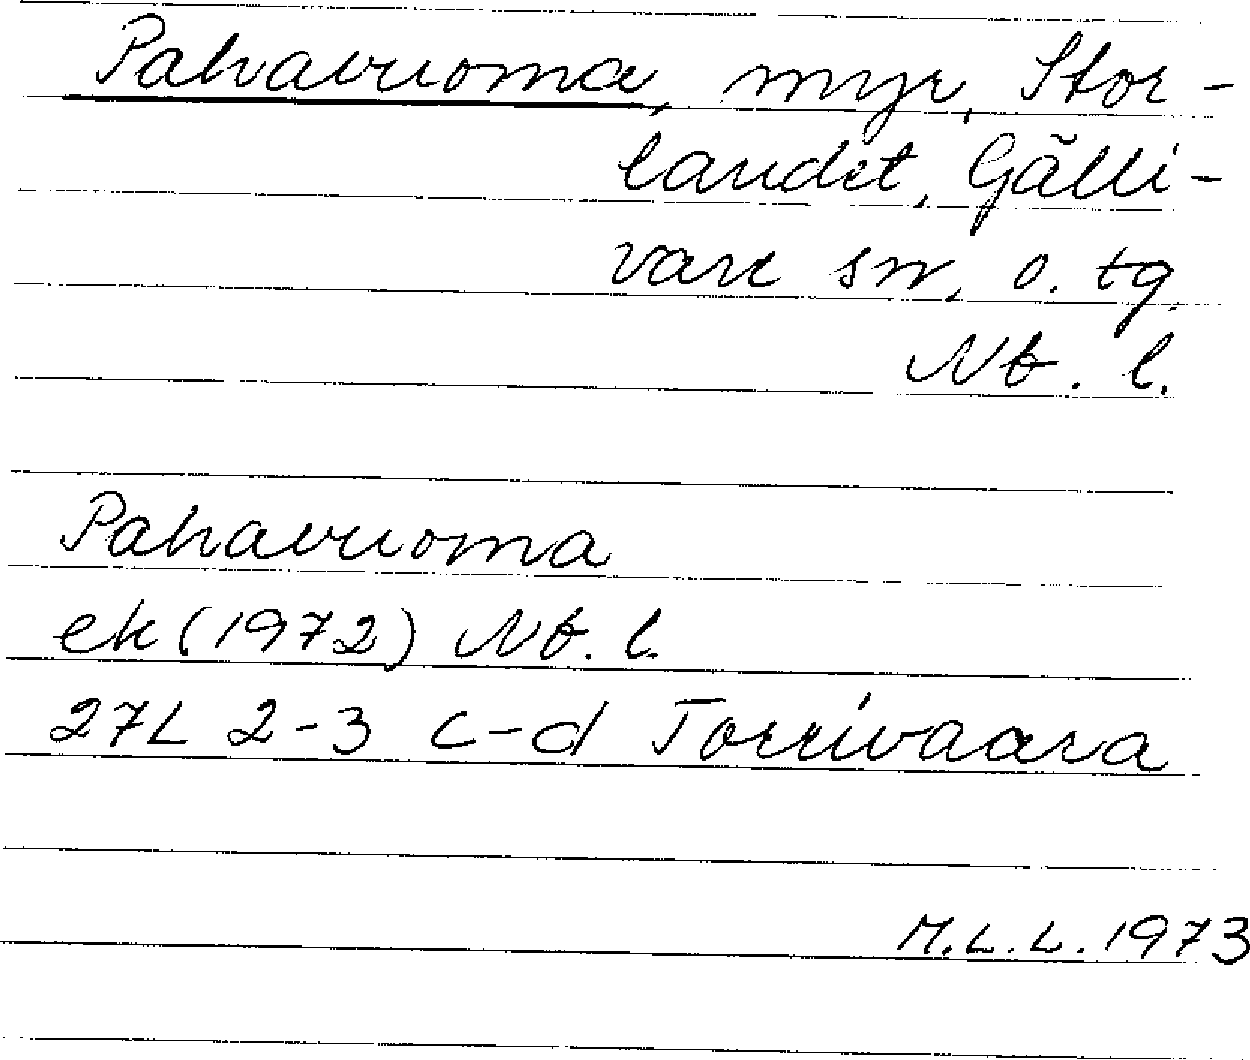 Pahavuoma, myr, Stor-
landet, Gälli-
vare sn, o. tg.
Nb. l.
Pahavuoma
ek (1972) Nb. l.
27L 2-3 c-d Torrivaara
M.L.L. 1973